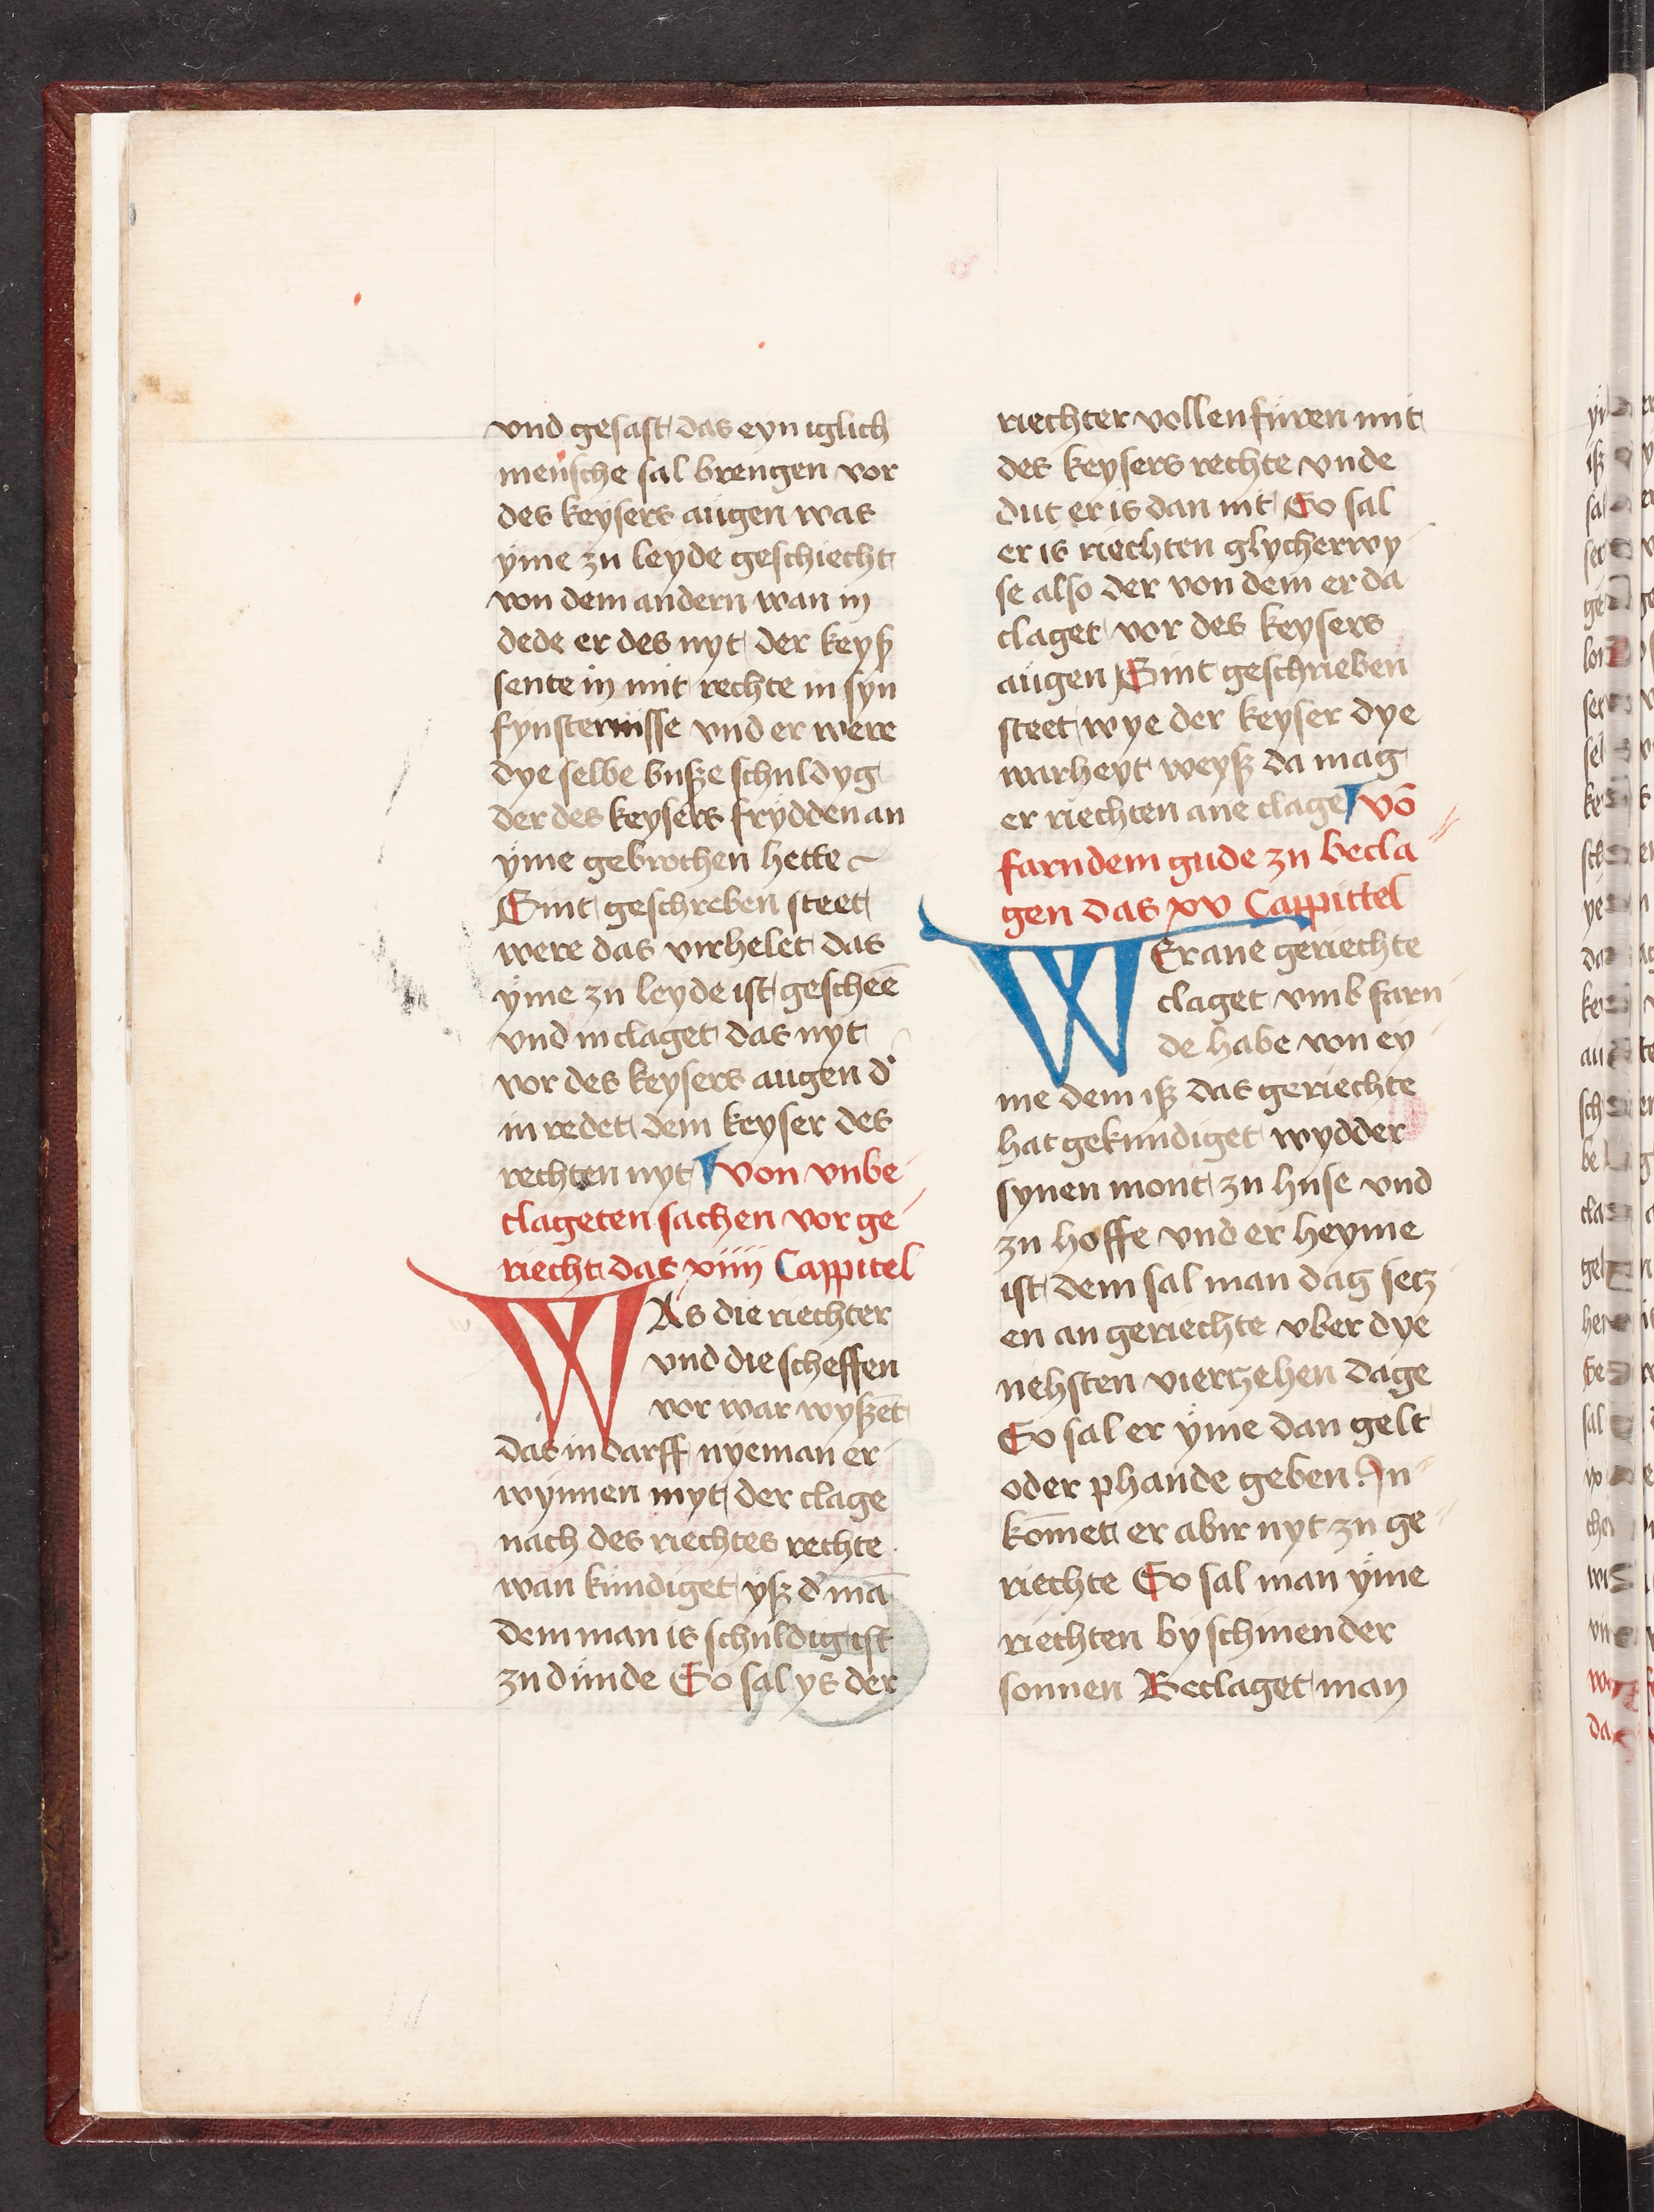 vnd gesast das eyn iglich
mensche sal brengen vor
des keysers augen was
yme zu leyde geschiecht
von dem andern wan in
dede er des nyt der keyß
sente in mit rechte in syn
fynsternisse vnd er were
dye selbe busze schuldyg
der des keysers frydden an
yme gebrochen hette
Sint geschreben steet
were das virhelet das
yme zu leyde ist gescheē
vnd in claget das nyt
vor des keysers augen d'
in redet dem keyser des
rechten nyt von vnbe
clageten sachen vor ge
riecht das xiiii Cappitel
WAs die riechter
vnd die scheffen
vor war wyszēt
das in darff nyeman er
wynnen myt der clage
nach des riechtes rechte
wan kundiget ysz d' mā
dem man is schuldig ist
zu dunde So sal ys der
riechter vollenfuren mit
des keysers rechte vnde
dut er is dan nit So sal
er is riechten glycherwy
se also der von dem er da
claget vor des keysers
augen Sint geschrieben
steet wye der keyser dye
warheyt weysz da mag
er riechten ane clage vō
farndem gude zu becla
gen das xv Cappittel
WEr ane geriechte
claget vmb farn
de habe von ey
me dem isz das geriechte
hat gekundiget wydder
synen mont zu huse vnd
zu hoffe vnd er heyme
ist dem sal man dag setz
en an geriechte vber dye
nehsten vierzehen dage
So sal er yme dan gelt
oder phande geben In
kōmet er abir nyt zu ge
riechte So sal man yme
riechten by schinender
sonnen Beclaget man